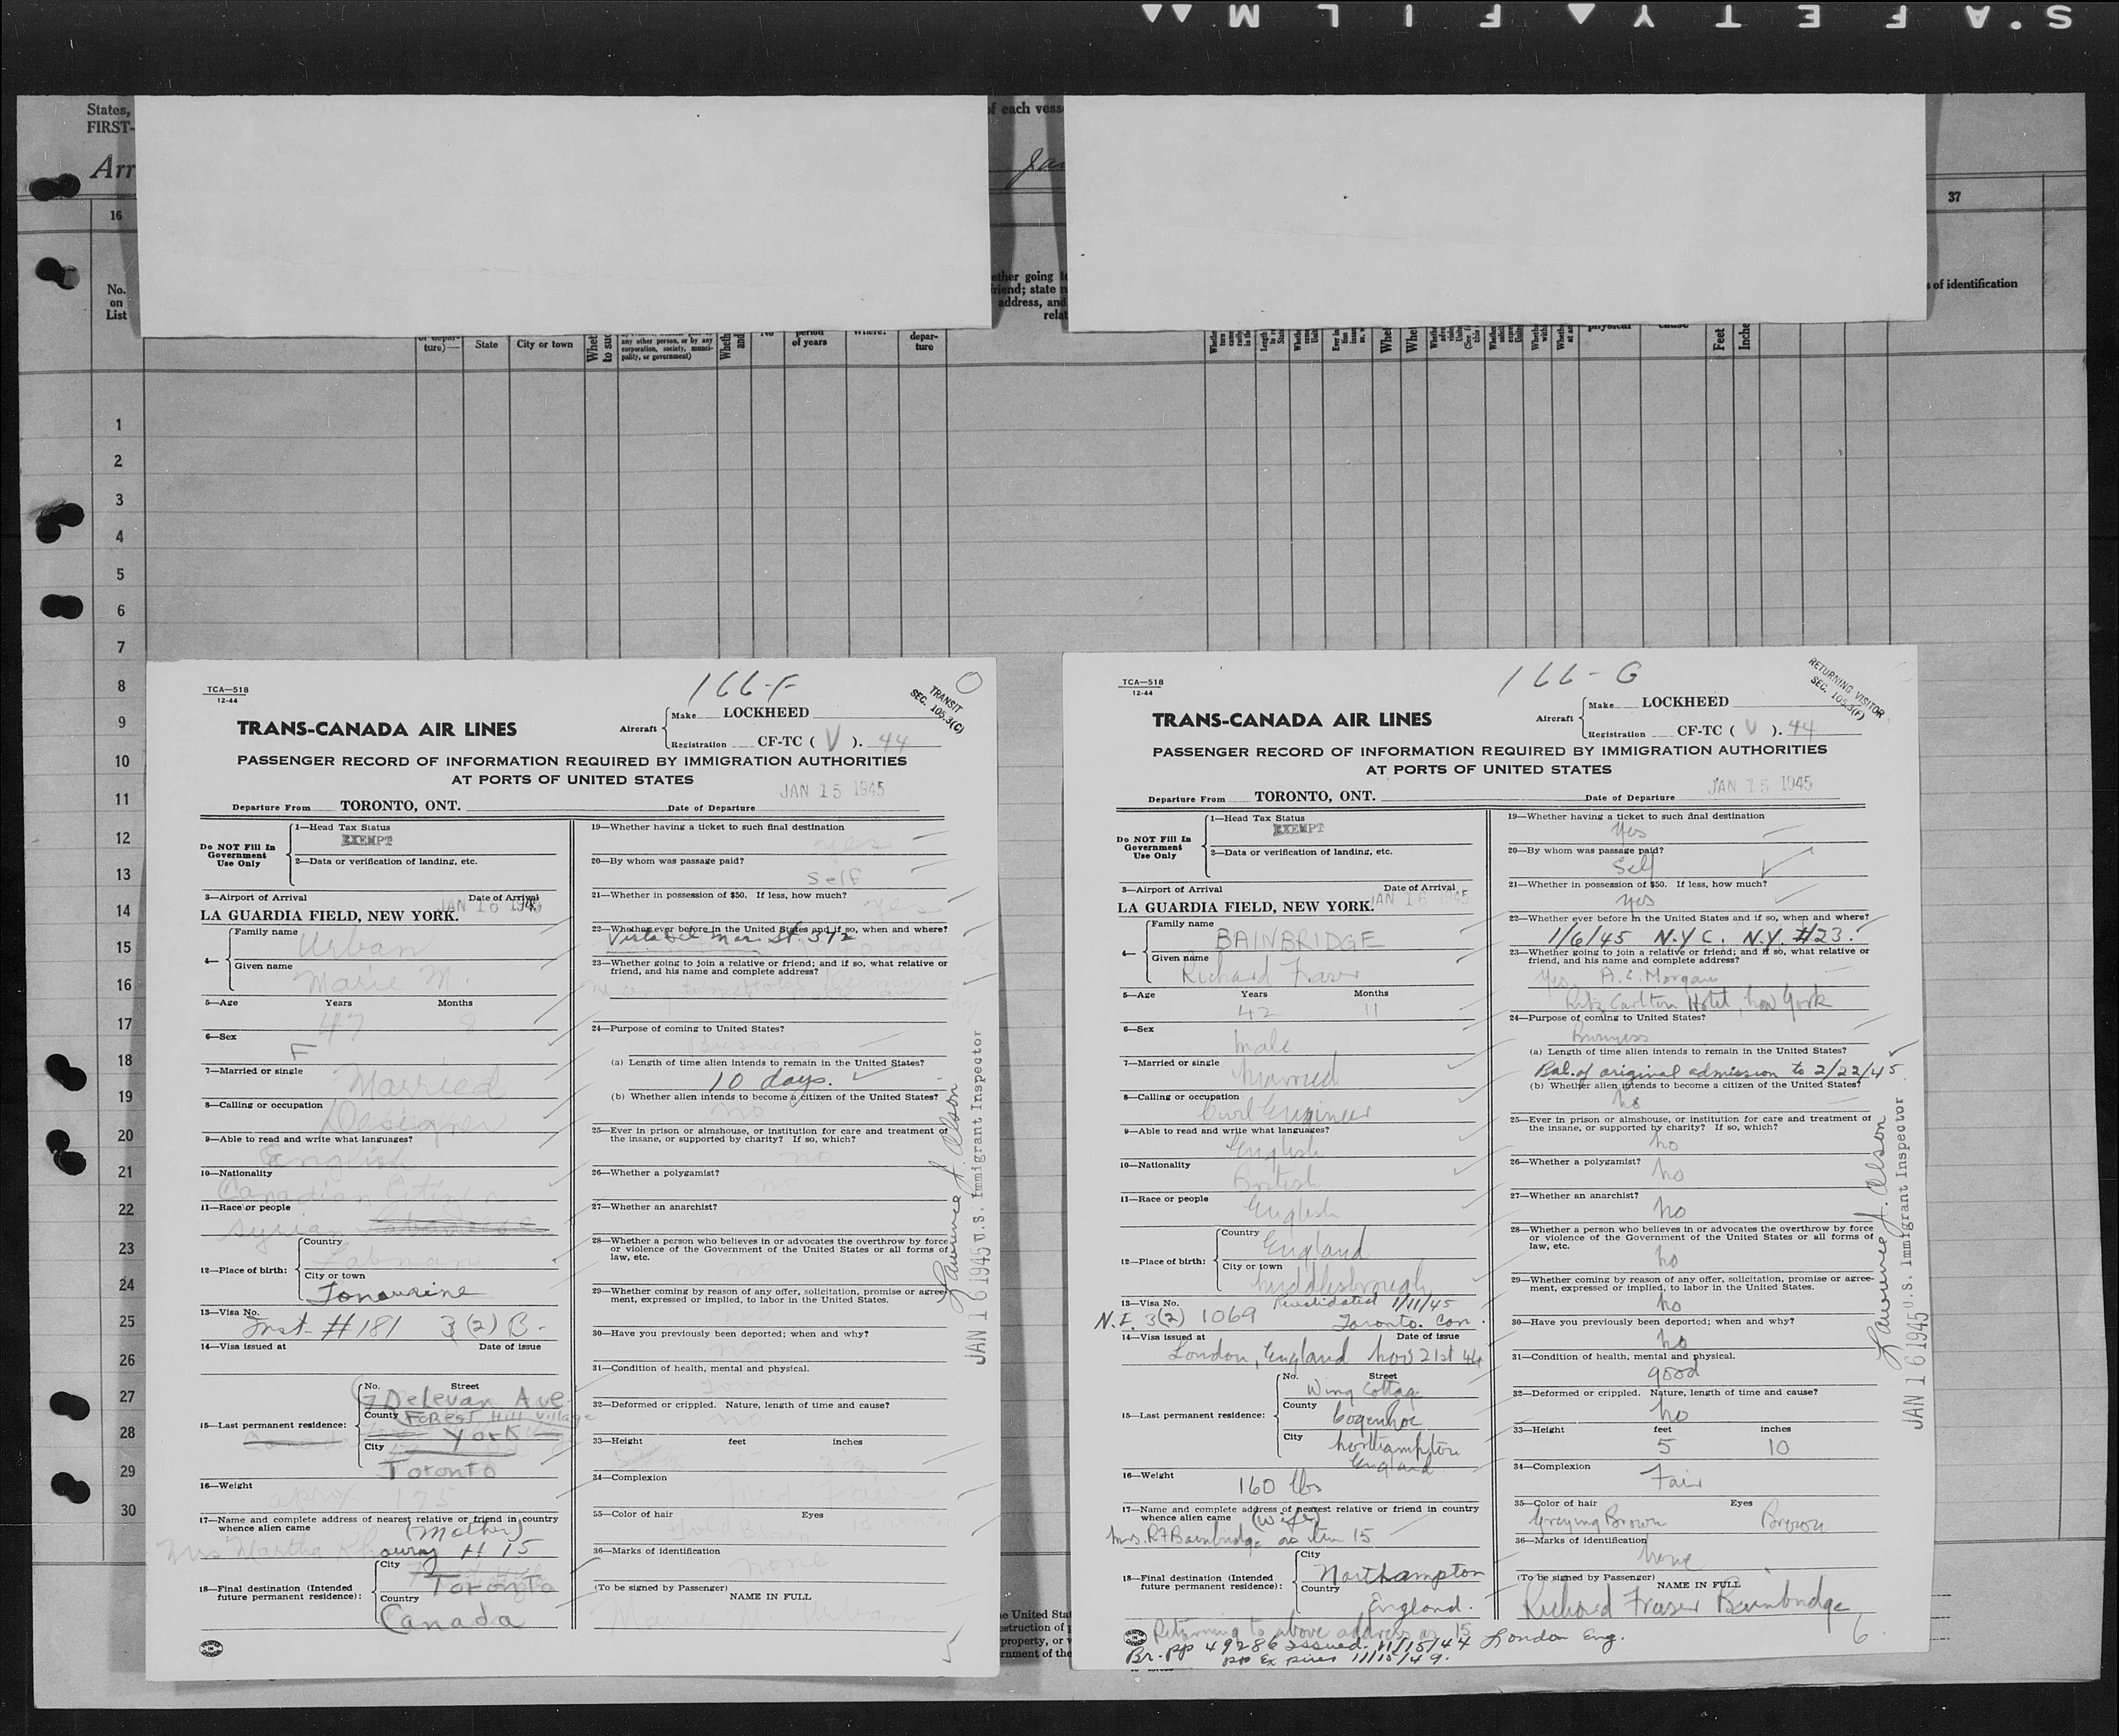 S·A F E T Y ▲ F I L M ▲▲
States,
FIRST-
of each vess
Arr
Jan
16
37
No.
on
List
ether going to
friend; state n
address, and
relat
s of identification
ture)—
State
City or town
any other person, or by any
corporation, society, munici-
pality, or government)
period
of years
Where?
depar-
ture
physical
cause
Feet
Inche
1
2
3
4
5
6
7
8
9
10
11
12
13
14
15
16
17
18
19
20
21
22
23
24
25
26
27
28
29
30
TCA—518
12-44
166-F
TRANSIT
SEC. 105.3(C)
TRANS-CANADA AIR LINES
Aircraft Make LOCKHEED
Registration CF-TC ( V ). 44
PASSENGER RECORD OF INFORMATION REQUIRED BY IMMIGRATION AUTHORITIES
AT PORTS OF UNITED STATES
JAN 15 1945
Departure From TORONTO, ONT. Date of Departure
Do NOT Fill In
Government
Use Only
1—Head Tax Status
EXEMPT
2—Data or verification of landing, etc.
3—Airport of Arrival Date of Arrival
LA GUARDIA FIELD, NEW YORK. JAN 16 1945
4— Family name Urban
Given name Marie M.
5—Age Years Months
47 8
6—Sex
F
7—Married or single
Married
8—Calling or occupation
Designer
9—Able to read and write what languages?
English
10—Nationality
Canadian Citizen
11—Race or people
Syrian
12—Place of birth: Country
City or town
13—Visa No.
Inst- #181 3(2) B-
14—Visa issued at Date of issue
15—Last permanent residence: No. Street
7 Delevan Ave
County Forest Hill Village
York
City
Toronto
16—Weight
aprox 175
17—Name and complete address of nearest relative or friend in country
whence alien came (Mother)
Mrs Martha Khouray # 15
18—Final destination (Intended
future permanent residence):
City
Toronto
Country
Canada
19—Whether having a ticket to such final destination
yes
20—By whom was passage paid?
Self
21—Whether in possession of $50. If less, how much?
yes
22—Whether ever before in the United States and if so, when and where?
23—Whether going to join a relative or friend; and if so, what relative or
friend, and his name and complete address?
24—Purpose of coming to United States?
Business
(a) Length of time alien intends to remain in the United States?
10 days.
(b) Whether alien intends to become a citizen of the United States?
no
25—Ever in prison or almshouse, or institution for care and treatment of
the insane, or supported by charity? If so, which?
no
26—Whether a polygamist?
no
27—Whether an anarchist?
no
28—Whether a person who believes in or advocates the overthrow by force
or violence of the Government of the United States or all forms of
law, etc.
no
29—Whether coming by reason of any offer, solicitation, promise or agree-
ment, expressed or implied, to labor in the United States.
no
30—Have you previously been deported; when and why?
no
31—Condition of health, mental and physical.
Good
32—Deformed or crippled. Nature, length of time and cause?
no
33—Height feet inches
34—Complexion
Med Fair
35—Color of hair Eyes
Brown
36—Marks of identification
none
(To be signed by Passenger) NAME IN FULL
Marie M. Urban
Lawrence A. Olson
JAN 16 1945 U.S. Immigrant Inspector
TCA—518
12-44
166-G
RETURNING VISITOR
SEC. 105.3(F)
TRANS-CANADA AIR LINES
Aircraft Make LOCKHEED
Registration CF-TC ( V ). 44
PASSENGER RECORD OF INFORMATION REQUIRED BY IMMIGRATION AUTHORITIES
AT PORTS OF UNITED STATES
JAN 15 1945
Departure From TORONTO, ONT. Date of Departure
Do NOT Fill In
Government
Use Only
1—Head Tax Status
EXEMPT
2—Data or verification of landing, etc.
3—Airport of Arrival Date of Arrival
LA GUARDIA FIELD, NEW YORK. JAN 16 1945
4— Family name BAINBRIDGE
Given name Richard Fraser
5—Age Years Months
42 11
6—Sex
Male
7—Married or single
Married
8—Calling or occupation
Civil Engineer
9—Able to read and write what languages?
English
10—Nationality
British
11—Race or people
English
12—Place of birth: Country
England
City or town
Middlesbrough
13—Visa No. Revalidated 1/11/45
N.I. 3(2) 1069 Toronto. Can.
14—Visa issued at Date of issue
London, England Nov 21st 44
15—Last permanent residence: No. Street
Wing Cottage
County
Cogenhoe
City
Northampton
England
16—Weight
160 lbs
17—Name and complete address of nearest relative or friend in country
whence alien came (Wife)
Mrs. R F Bainbridge as item 15
18—Final destination (Intended
future permanent residence):
City
Northampton
Country
England.
Returning to above address as 15
Br. pp 49286 Issued. 11/15/44 London Eng.
pp Expires 11/15/49.
19—Whether having a ticket to such final destination
Yes
20—By whom was passage paid?
Self
21—Whether in possession of $50. If less, how much?
yes
22—Whether ever before in the United States and if so, when and where?
1/6/45 N.Y.C. N.Y. #23.
23—Whether going to join a relative or friend; and if so, what relative or
friend, and his name and complete address?
Yes A. C. Morgan
Ritz Carlton Hotel, New York
24—Purpose of coming to United States?
Business
(a) Length of time alien intends to remain in the United States?
Bal. of original admission to 2/22/45
(b) Whether alien intends to become a citizen of the United States?
No
25—Ever in prison or almshouse, or institution for care and treatment of
the insane, or supported by charity? If so, which?
no
26—Whether a polygamist?
no
27—Whether an anarchist?
no
28—Whether a person who believes in or advocates the overthrow by force
or violence of the Government of the United States or all forms of
law, etc.
no
29—Whether coming by reason of any offer, solicitation, promise or agree-
ment, expressed or implied, to labor in the United States.
no
30—Have you previously been deported; when and why?
no
31—Condition of health, mental and physical.
good
32—Deformed or crippled. Nature, length of time and cause?
no
33—Height feet inches
5 10
34—Complexion
Fair
35—Color of hair Eyes
Greying Brown Brown
36—Marks of identification
None
(To be signed by Passenger) NAME IN FULL
Richard Fraser Bainbridge
6
Lawrence A. Olson
JAN 16 1945 U.S. Immigrant Inspector
e United Stat
struction of p
property, or w
rnment of the